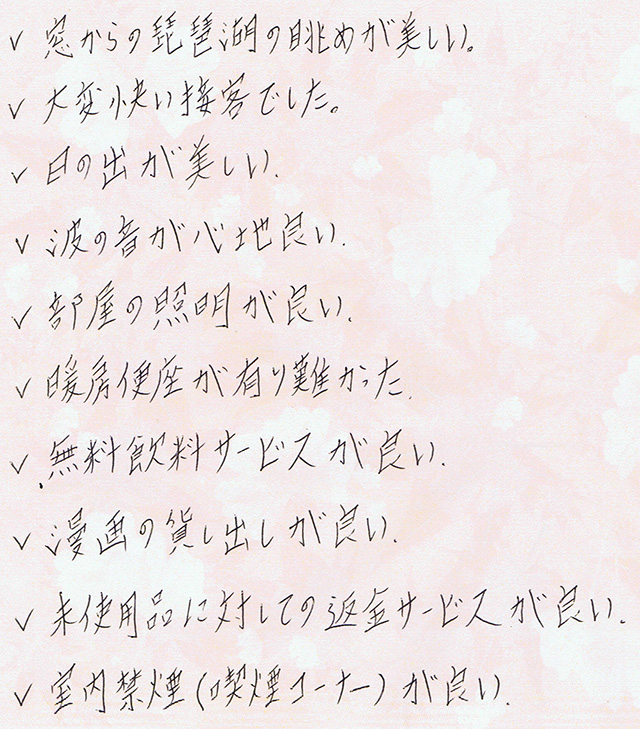 ✓ 窓からの琵琶湖の眺めが美しい。
✓ 大変快い接客でした。
✓ 日の出が美しい.
✓ 波の音が心地良い.
✓ 部屋の照明が良い.
✓ 暖房便座が有り難かった.
✓ 無料飲料サービスが良い.
✓ 漫画の貸し出しが良い.
✓ 未使用品に対しての返金サービスが良い.
✓ 室内禁煙(喫煙コーナー)が良い.